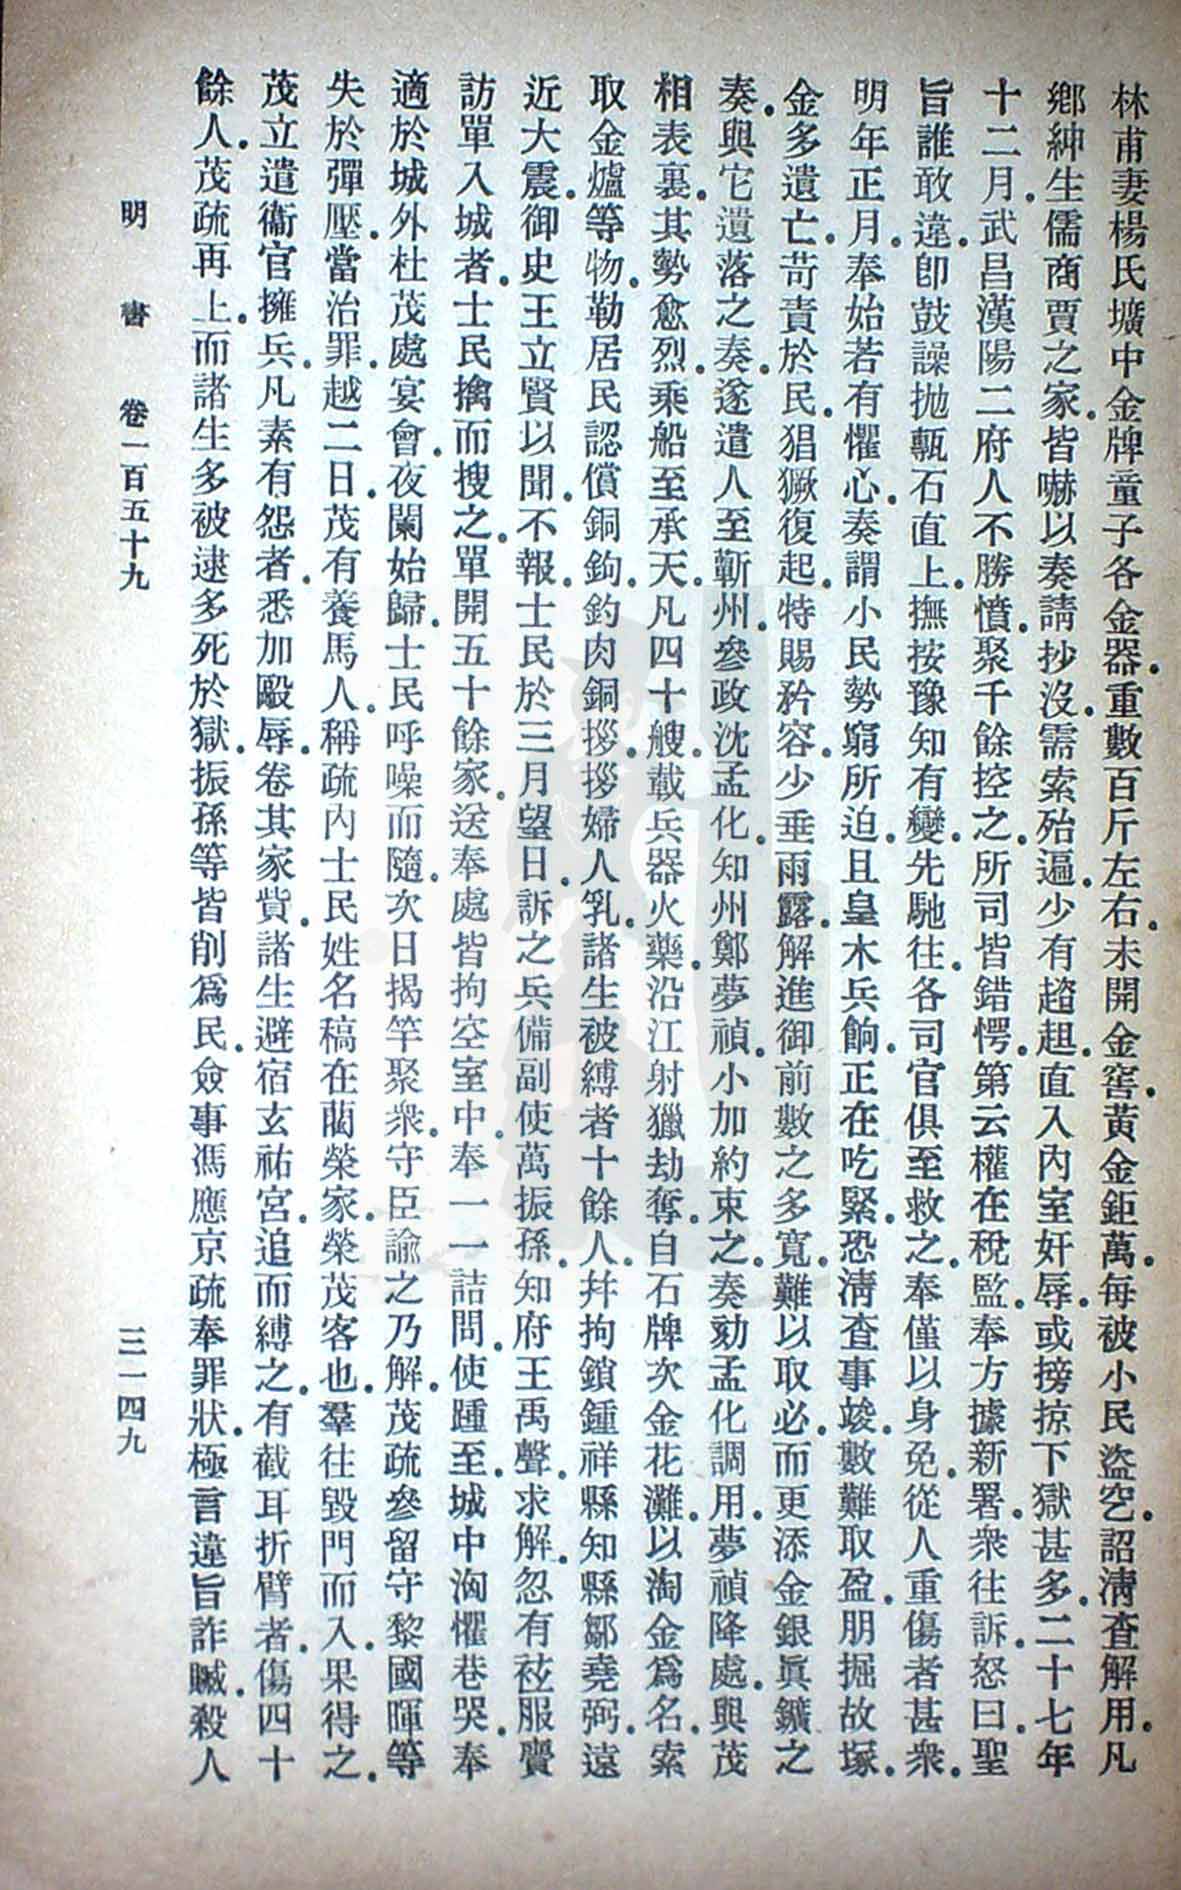 林甫妻楊氏壙中金牌童子各金器。重數百斤左右。未開金窖。黃金鉅萬。每被小民盜空。詔淸查解用。凡
鄉紳生儒商賈之家。皆嚇以奏請抄沒。需索殆遍。少有趦趄。直入內室奸辱。或搒掠下獄甚多。二十七年
十二月。武昌漢陽二府人不勝憤。聚千餘控之。所司皆錯愕。第云權在稅監。奉方據新署。衆往訴。怒曰。聖
旨誰敢違。卽鼓譟拋甎石直上。撫按豫知有變。先馳往。各司官俱至救之。奉僅以身免。從人重傷者甚衆。
明年正月。奉始若有懼心。奏謂小民勢窮所迫。且皇木兵餉。正在吃緊。恐淸查事竣。數難取盈。朋掘故塚。
金多遺亡。苛責於民。猖獗復起。特賜矜容。少垂雨露。解進御前數之多寬。難以取必。而更添金銀眞鑛之
奏。與它遺落之奏。遂遣人至蘄州。參政沈孟化。知州鄭夢禎。小加約束之。奏劾孟化調用。夢禎降處。與茂
相表裏。其勢愈烈。乘船至承天。凡四十艘。載兵器火藥。沿江射獵劫奪。自石牌次金花灘。以淘金爲名。索
取金爐等物。勒居民認償銅鉤。釣肉銅拶。拶婦人乳。諸生被縛者十餘人。幷拘鎖鍾祥縣知縣鄒堯弼。遠
近大震。御史王立賢以聞。不報。士民於三月望日。訴之兵備副使萬振孫。知府王禹聲。求解。忽有衩服賷
訪單入城者。士民擒而搜之。單開五十餘家。送奉處。皆拘空室中。奉一一詰問。使踵至。城中洶懼巷哭。奉
適於城外杜茂處宴會。夜闌始歸。士民呼噪而隨。次日揭竿聚衆。守臣諭之乃解。茂疏參留守黎國暉等
失於彈壓。當治罪。越二日。茂有養馬人。稱疏內士民姓名稿在藺榮家。榮茂客也。羣往毀門而入。果得之。
茂立遣衞官擁兵。凡素有怨者。悉加毆辱。卷其家貲。諸生避宿玄祐宮。追而縛之。有截耳折臂者。傷四十
餘人。茂疏再上。而諸生多被逮多死於獄。振孫等皆削爲民。僉事馮應京疏奉罪狀。極言違旨詐贓。殺人
明書 卷一百五十九 三一四九